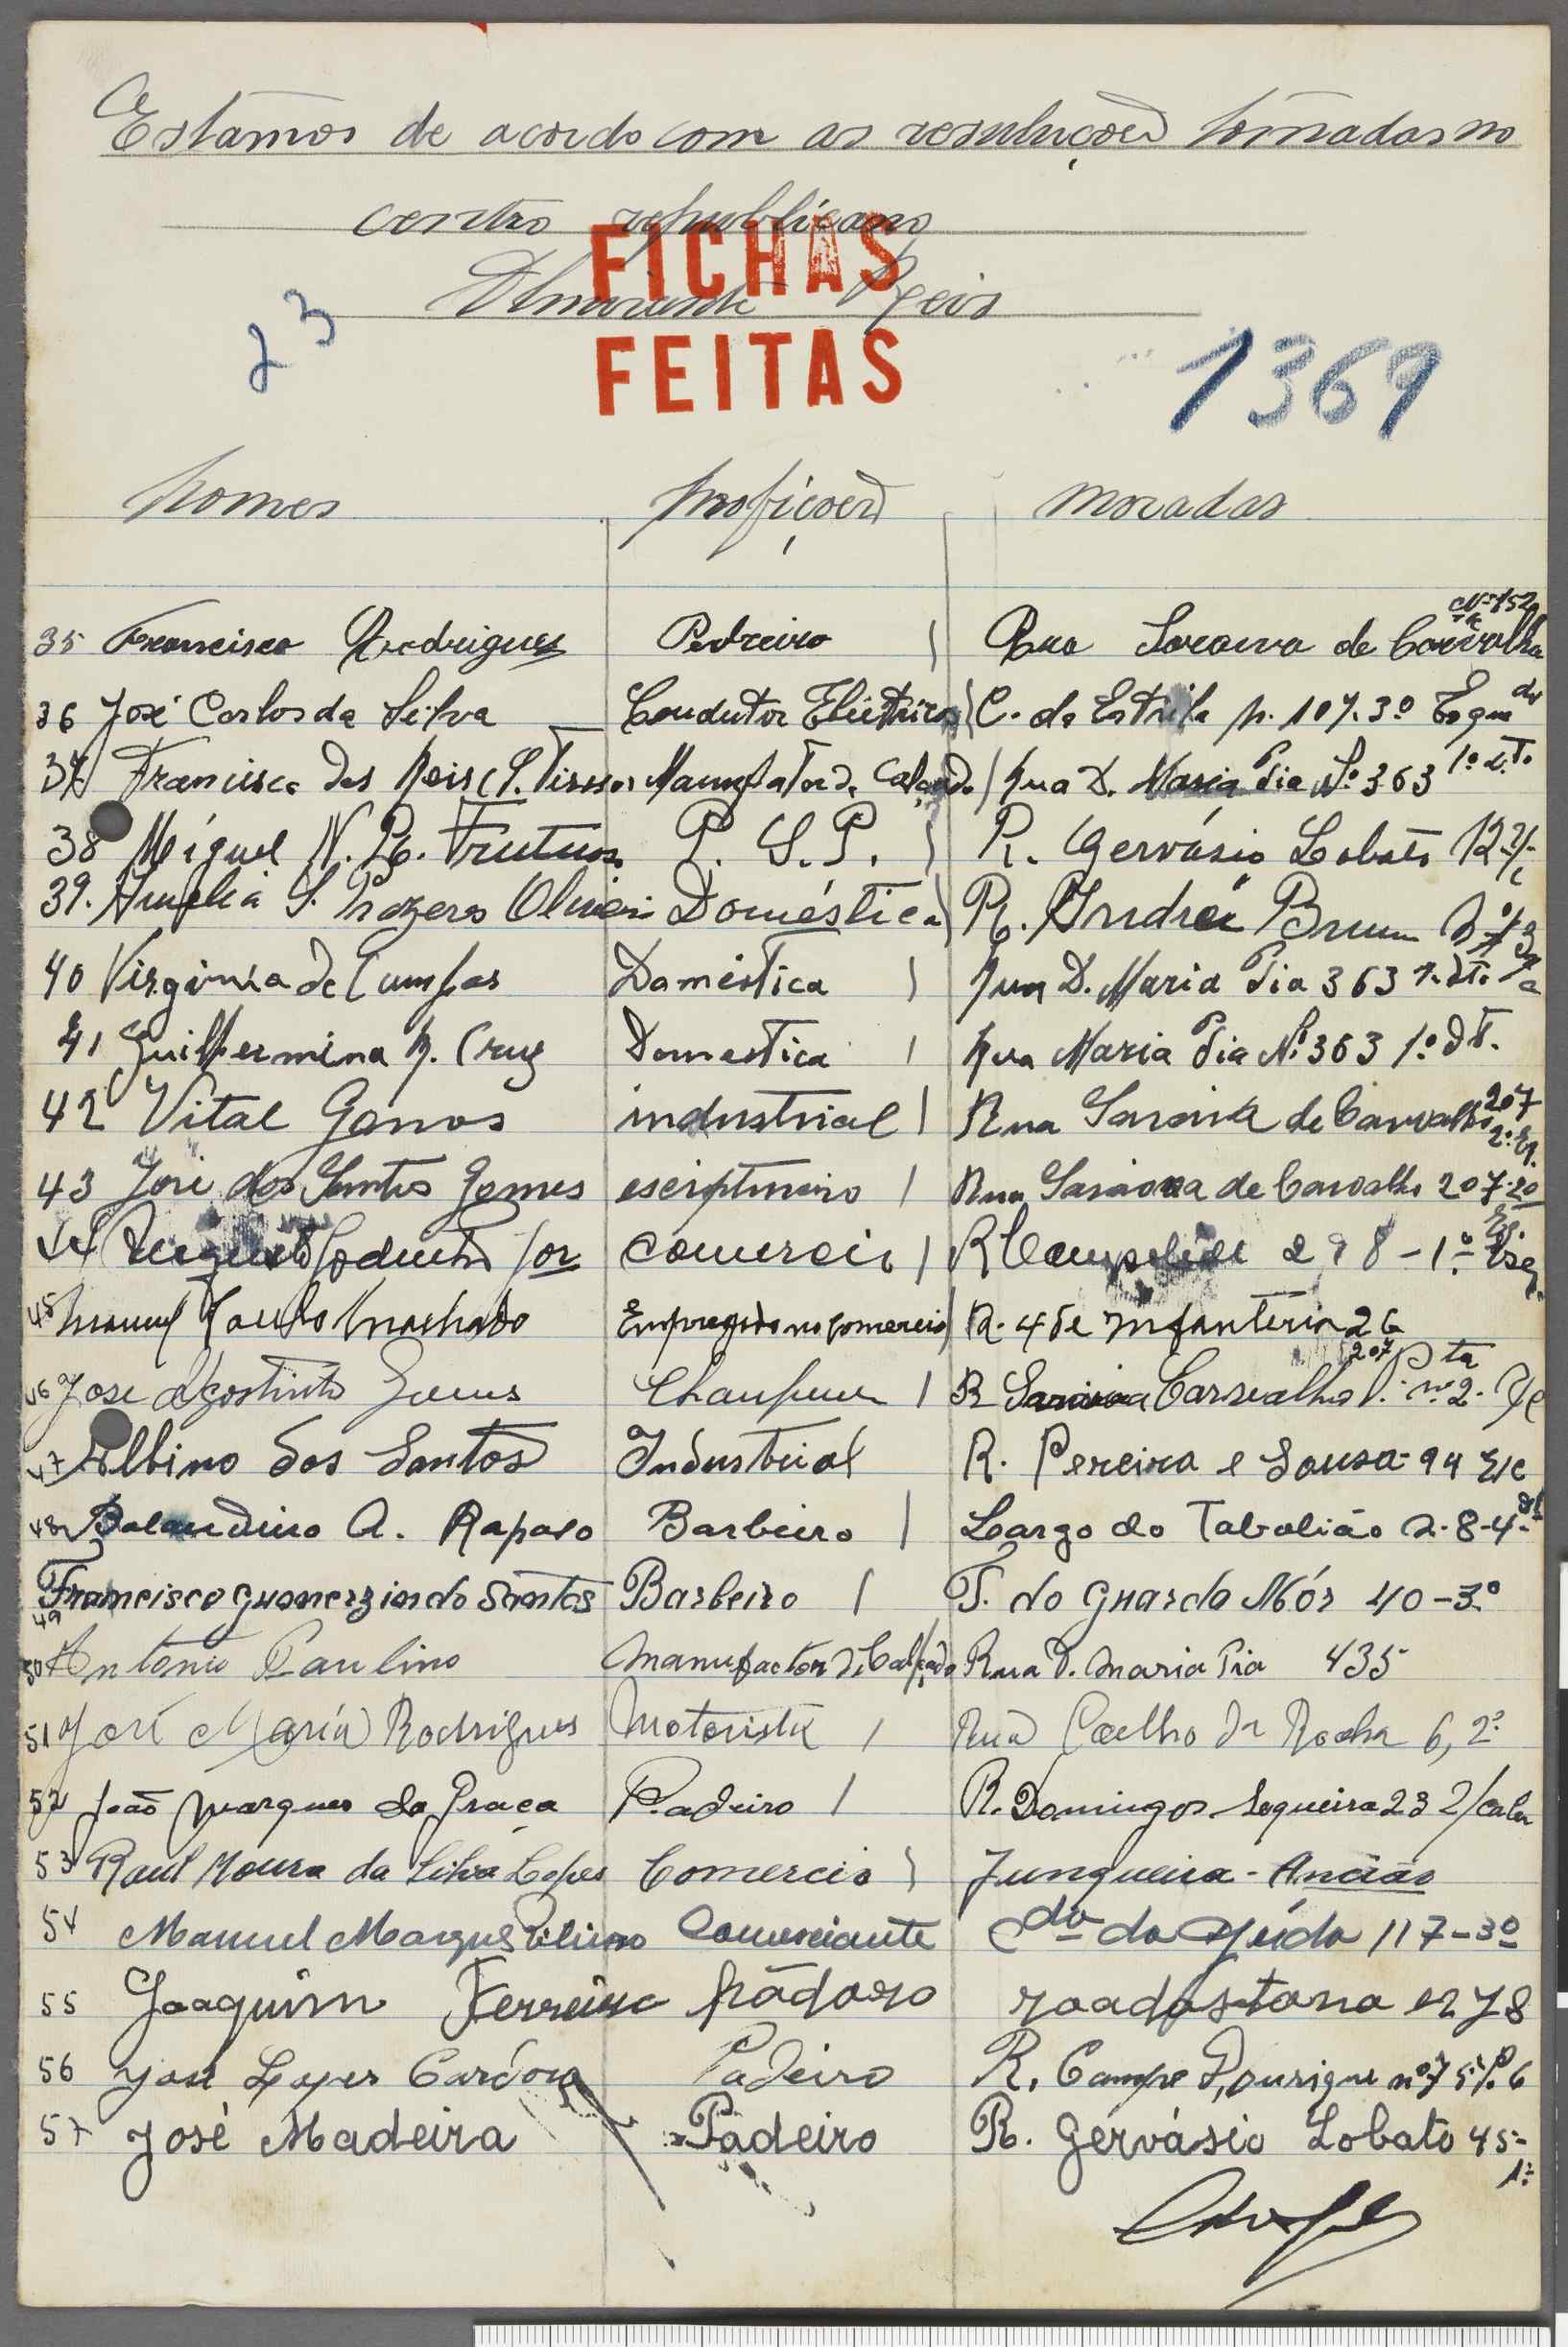 Estamos de acordo com as resuluçoes tomadas no
centro republicano
Almirante Reis
FICHAS
FEITAS
23
1369
nomes profiçoes moradas
35 Francisco Rodrigues Pedreiro Rua Saraiva de Carvalho Nº 152
36 José Carlos da Silva Condutor Electricos C. da Estrela n. 107. 3º Esqued
37 Francisco dos Reis Manufator de Calçado Rua D. Maria Pia Nº 363 1º d.to
38 Miguel N. R. Frutuoso P. S. P. R. Gervásio Lobato 12
39. Amelia S. Prazeres Oliveira Doméstica R. André Brun
40 Virginia de Campos Doméstica Rua D. Maria Pia 363 1. dto
41 Guilhermina R. Cruz Domestica Rua Maria Pia Nº 363 1º dt.
42 Vital Gomos industrial Rua Saraiva de Carvalho 207 2º
43 José dos Santos Gomes escripturario Rua Saraiva de Carvalho 207-2º
44 Augusto comercio R Campolide 298-1º Esq
45 Manuel Machado Empregado no comercio R. 4 de Infanteria 26
46 José Agostinho Gomes Chaufeur R Saraiva Carvalho 207 Pta nº 2.
47 Albino dos Santos Industrial R. Pereira e Sousa-94
48 A. Raposo Barbeiro Largo do Tabelião 2-8-4-
49 Francisco dos Santos Barbeiro T. do Guarda Mór 40-3º
50 Antonio Paulino Manufactor de Calçado Rua D. Maria Pia 435
51 José Maria Rodrigues Motorista Rua Coelho da Rocha 6, 2º
52 João Marques da Graça Padeiro R. Domingos Sequeira 23
53 Raul Moura da Silva Lopes Comercio Junqueira - Ancião
54 Manuel Marques Comerciante Cda da Ajuda 117-3º
55 Joaquim Ferreira pádaro n 78
56 José Lopes Cardoso Padeiro R. Campo D'Ourique nº 75
57 José Madeira Padeiro R. Gervásio Lobato 45-1º